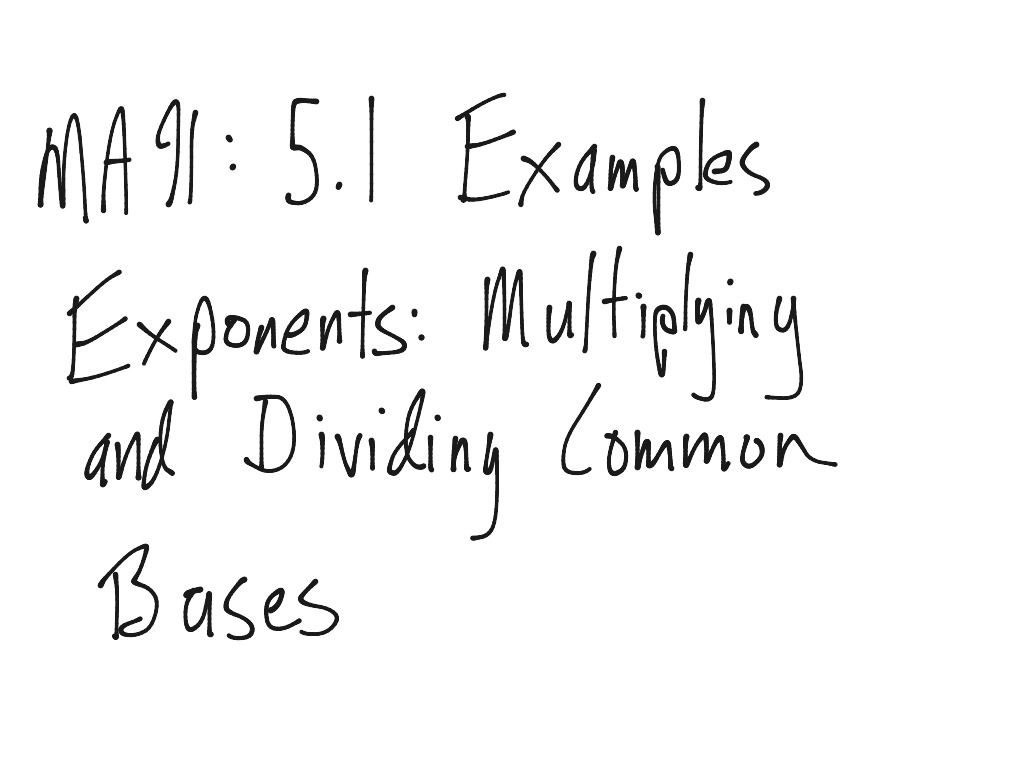 MA91: 5.1 Examples
Exponents: Multiplying
and Dividing Common
Bases